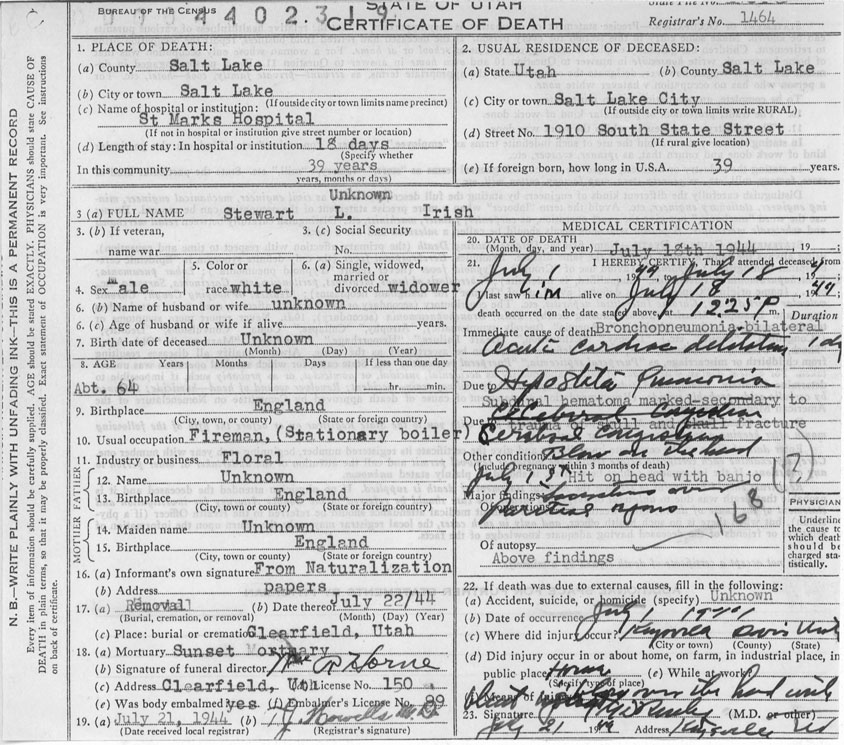 BUREAU OF THE CENSUS
4402.319
STATE OF UTAH
CERTIFICATE OF DEATH
Registrar's No. 1464
N. B.—WRITE PLAINLY WITH UNFADING INK—THIS IS A PERMANENT RECORD
Every item of information should be carefully supplied. AGE should be stated EXACTLY. PHYSICIANS should state CAUSE OF
DEATH in plain terms, so that it may be properly classified. Exact statement of OCCUPATION is very important. See instructions
on back of certificate.
1. PLACE OF DEATH:
(a) County Salt Lake
(b) City or town Salt Lake
(If outside city or town limits name precinct)
(c) Name of hospital or institution:
St Marks Hospital
(If not in hospital or institution give street number or location)
(d) Length of stay: In hospital or institution 18 days
(Specify whether
In this community 39 years
years, months or days)
2. USUAL RESIDENCE OF DECEASED:
(a) State Utah (b) County Salt Lake
(c) City or town Salt Lake City
(If outside city or town limits write RURAL)
(d) Street No. 1910 South State Street
(If rural give location)
(e) If foreign born, how long in U.S.A. 39 years.
Unknown
3 (a) FULL NAME Stewart L. Irish
3. (b) If veteran, 3. (c) Social Security
name war No.
5. Color or 6. (a) Single, widowed,
married or
4. Sex male race white divorced widower
6. (b) Name of husband or wife unknown
6. (c) Age of husband or wife if alive years.
7. Birth date of deceased Unknown
(Month) (Day) (Year)
8. AGE Years Months Days If less than one day
Abt. 64 hr. min.
9. Birthplace England
(City, town, county) (State or foreign country)
10. Usual occupation Fireman, (Stationary boiler)
11. Industry or business Floral
FATHER
12. Name Unknown
13. Birthplace England
(City, town or county) (State or foreign country)
MOTHER
14. Maiden name Unknown
15. Birthplace England
(City, town or county) (State or foreign country)
16. (a) Informant's own signature From Naturalization
(b) Address papers
17. (a) Removal (b) Date thereof July 22/44
(Burial, cremation, or removal) (Month) (Day) (Year)
(c) Place: burial or cremation Clearfield, Utah
18. (a) Mortuary Sunset Mortuary
(b) Signature of funeral director Horne
(c) Address Clearfield, Uth License No. 150
(e) Was body embalmed yes (f) Embalmer's License No. 99
19. (a) July 21, 1944 (b) J Howells M.D.
(Date received local registrar) (Registrar's signature)
MEDICAL CERTIFICATION
20. DATE OF DEATH
(Month, day, and year) July 18th 1944, 19
21. I HEREBY CERTIFY, That I attended deceased from
July 1 1944 to July 18
I last saw him alive on July 18 1944
death occurred on the date stated above, at 12.25 P m.
Duration
Immediate cause of death Bronchopneumonia-bilateral
Acute cardiac dilatation 1 day
Due to Hypostatic Pneumonia
Subdural hematoma marked-secondary to
Due to trauma of skull and skull fracture
Cerebral
Other condition Blow on the head
(Include pregnancy within 3 months of death)
July 1 Hit on head with banjo
Major findings:
Of operations
168 (?)
PHYSICIAN
Underline
the cause to
which death
should be
charged sta-
tistically.
Of autopsy
Above findings
22. If death was due to external causes, fill in the following:
(a) Accident, suicide, or homicide (specify) Unknown
(b) Date of occurrence July 1
(c) Where did injury occur? Kaysville Davis Utah
(City or town) (County) (State)
(d) Did injury occur in or about home, on farm, in industrial place, in
public place Home (e) While at work?
(Specify type of place)
Means of injury blow over the head with
23. Signature (M.D. or other)
July 21 Address Kaysville